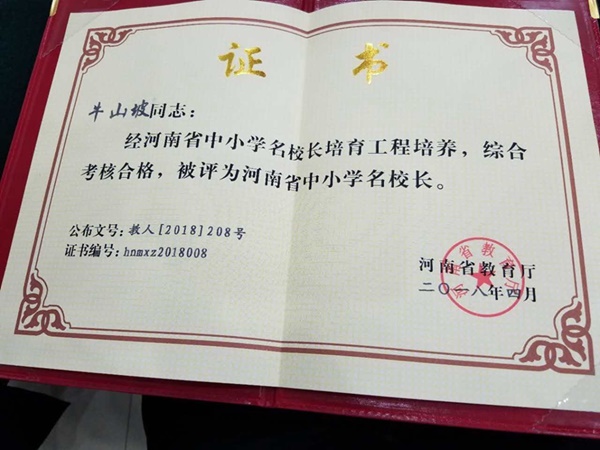 证书
牛山坡同志：
经河南省中小学名校长培育工程培养，综合
考核合格，被评为河南省中小学名校长。
公布文号：教人[2018]208号
证书编号：hnmxz2018008
河南省教育厅
二〇一八年四月
河南省教育厅